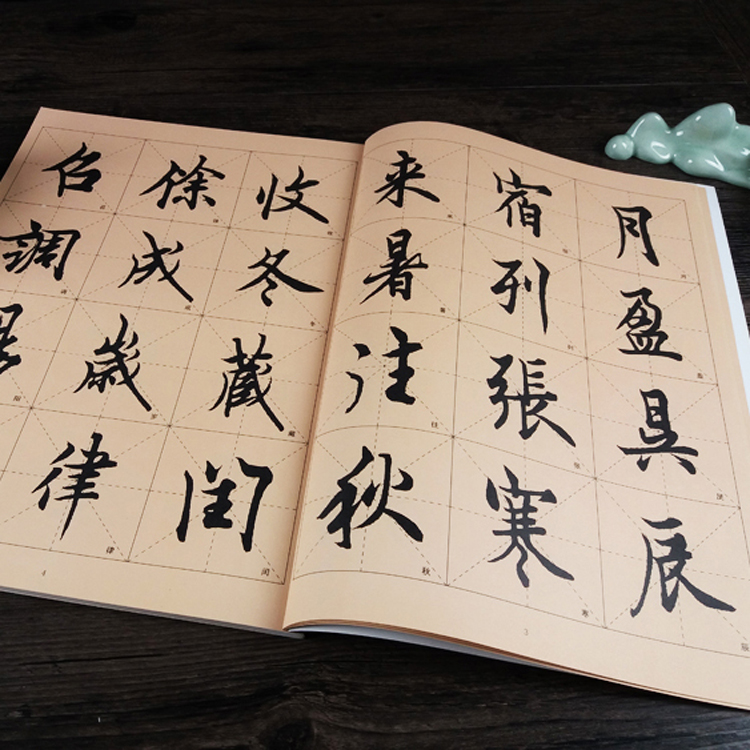 月盈昃辰
宿列張寒
来暑往秋
3
收冬藏閏
餘成歲律
吕調
4